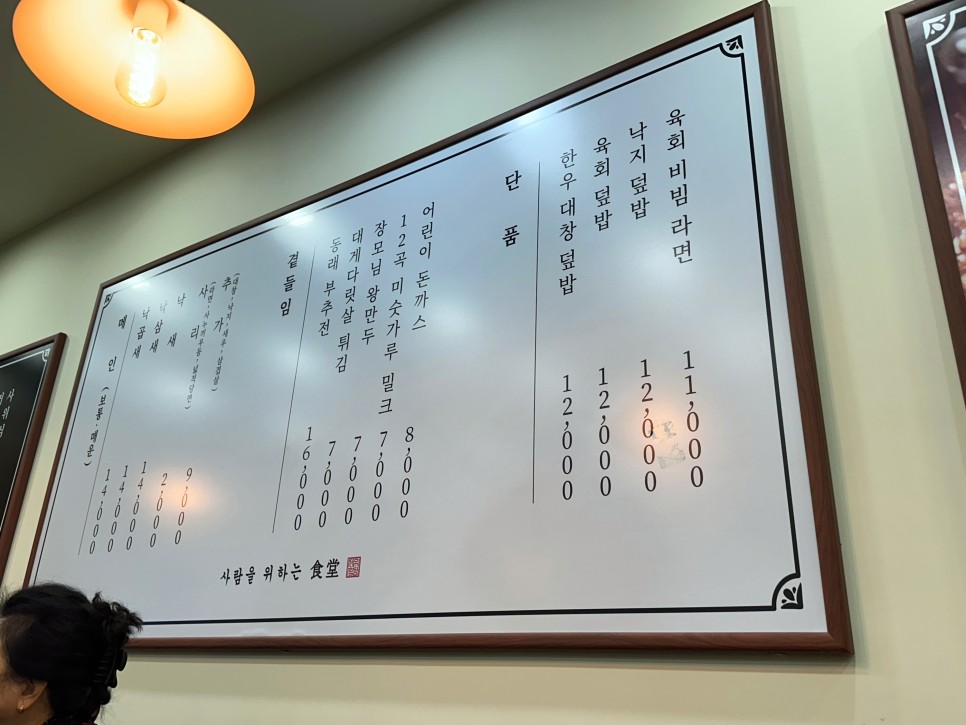 메인 (보통·매운)
낙곱새 14,000
낙삼새 14,000
낙새 14,000
사리 (라면·사누끼우동·넓적당면) 2,000
추가 (대창·낙지·새우·삼겹살) 9,000
곁들임
동래 부추전 16,000
대게다릿살 튀김 7,000
장모님 왕만두 7,000
12곡 미숫가루 밀크 7,000
어린이 돈까스 8,000
단품
한우대창덮밥 12,000
육회 덮밥 12,000
낙지 덮밥 12,000
육회비빔라면 11,000
사람을 위하는 食堂